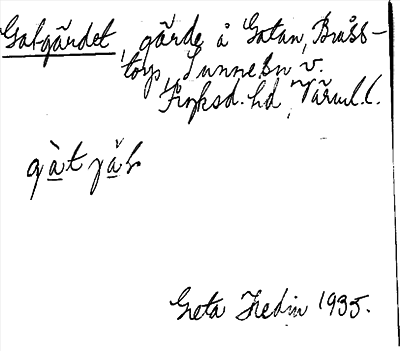 Gatgärdet, gärde å Gatan, Bråss-
torp, Sunnebn v.
Fryksd. hd, Värml. l.
gàt jǎḷ
Greta Hedin 1935.